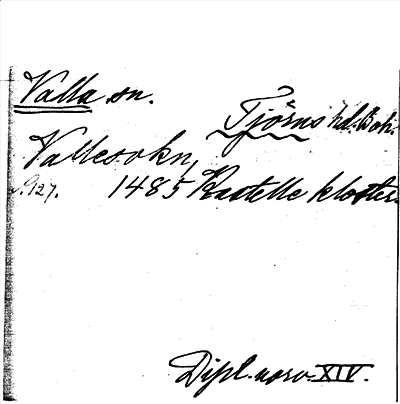 Valla sn.
Tjörns hd. Boh.
Vallesokn,
s. 927. 1485 Kastelle kloster.
Dipl. norv. XIV.